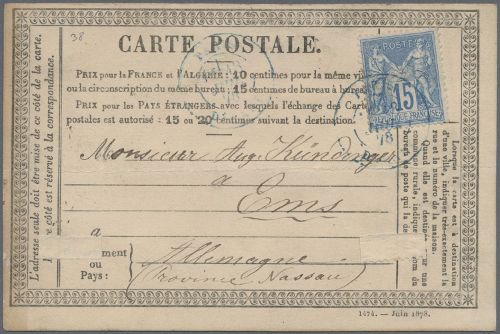 38
CARTE POSTALE.
PRIX pour la FRANCE et l'ALGÉRIE: 10 centimes pour la même vil
ou la circonscription du même bureau; 15 centimes de bureau à bure
PRIX pour les PAYS ÉTRANGERS avec lesquels l'échange des Cart
postales est autorisé: 15 ou 20 centimes suivant la destination.
POSTE
15
REPUBLIQUE FRANÇAISE
78
L'adresse seule doit être mise de ce côté de la carte.
Ce côté est réservé à la correspondance.
Monsieur Aug. Kündenger
à
Ems
a
ment ou
Pays:
Allemagne
(Province Nassau)
Lorsque la carte est à destination
d'une ville, indiquer très-exactement la
rue et le numéro de la maison.
Quand elle est destinée pour une
commune rurale, indiquer le nom du
bureau de poste qui la de
1474. — Juin 1878.